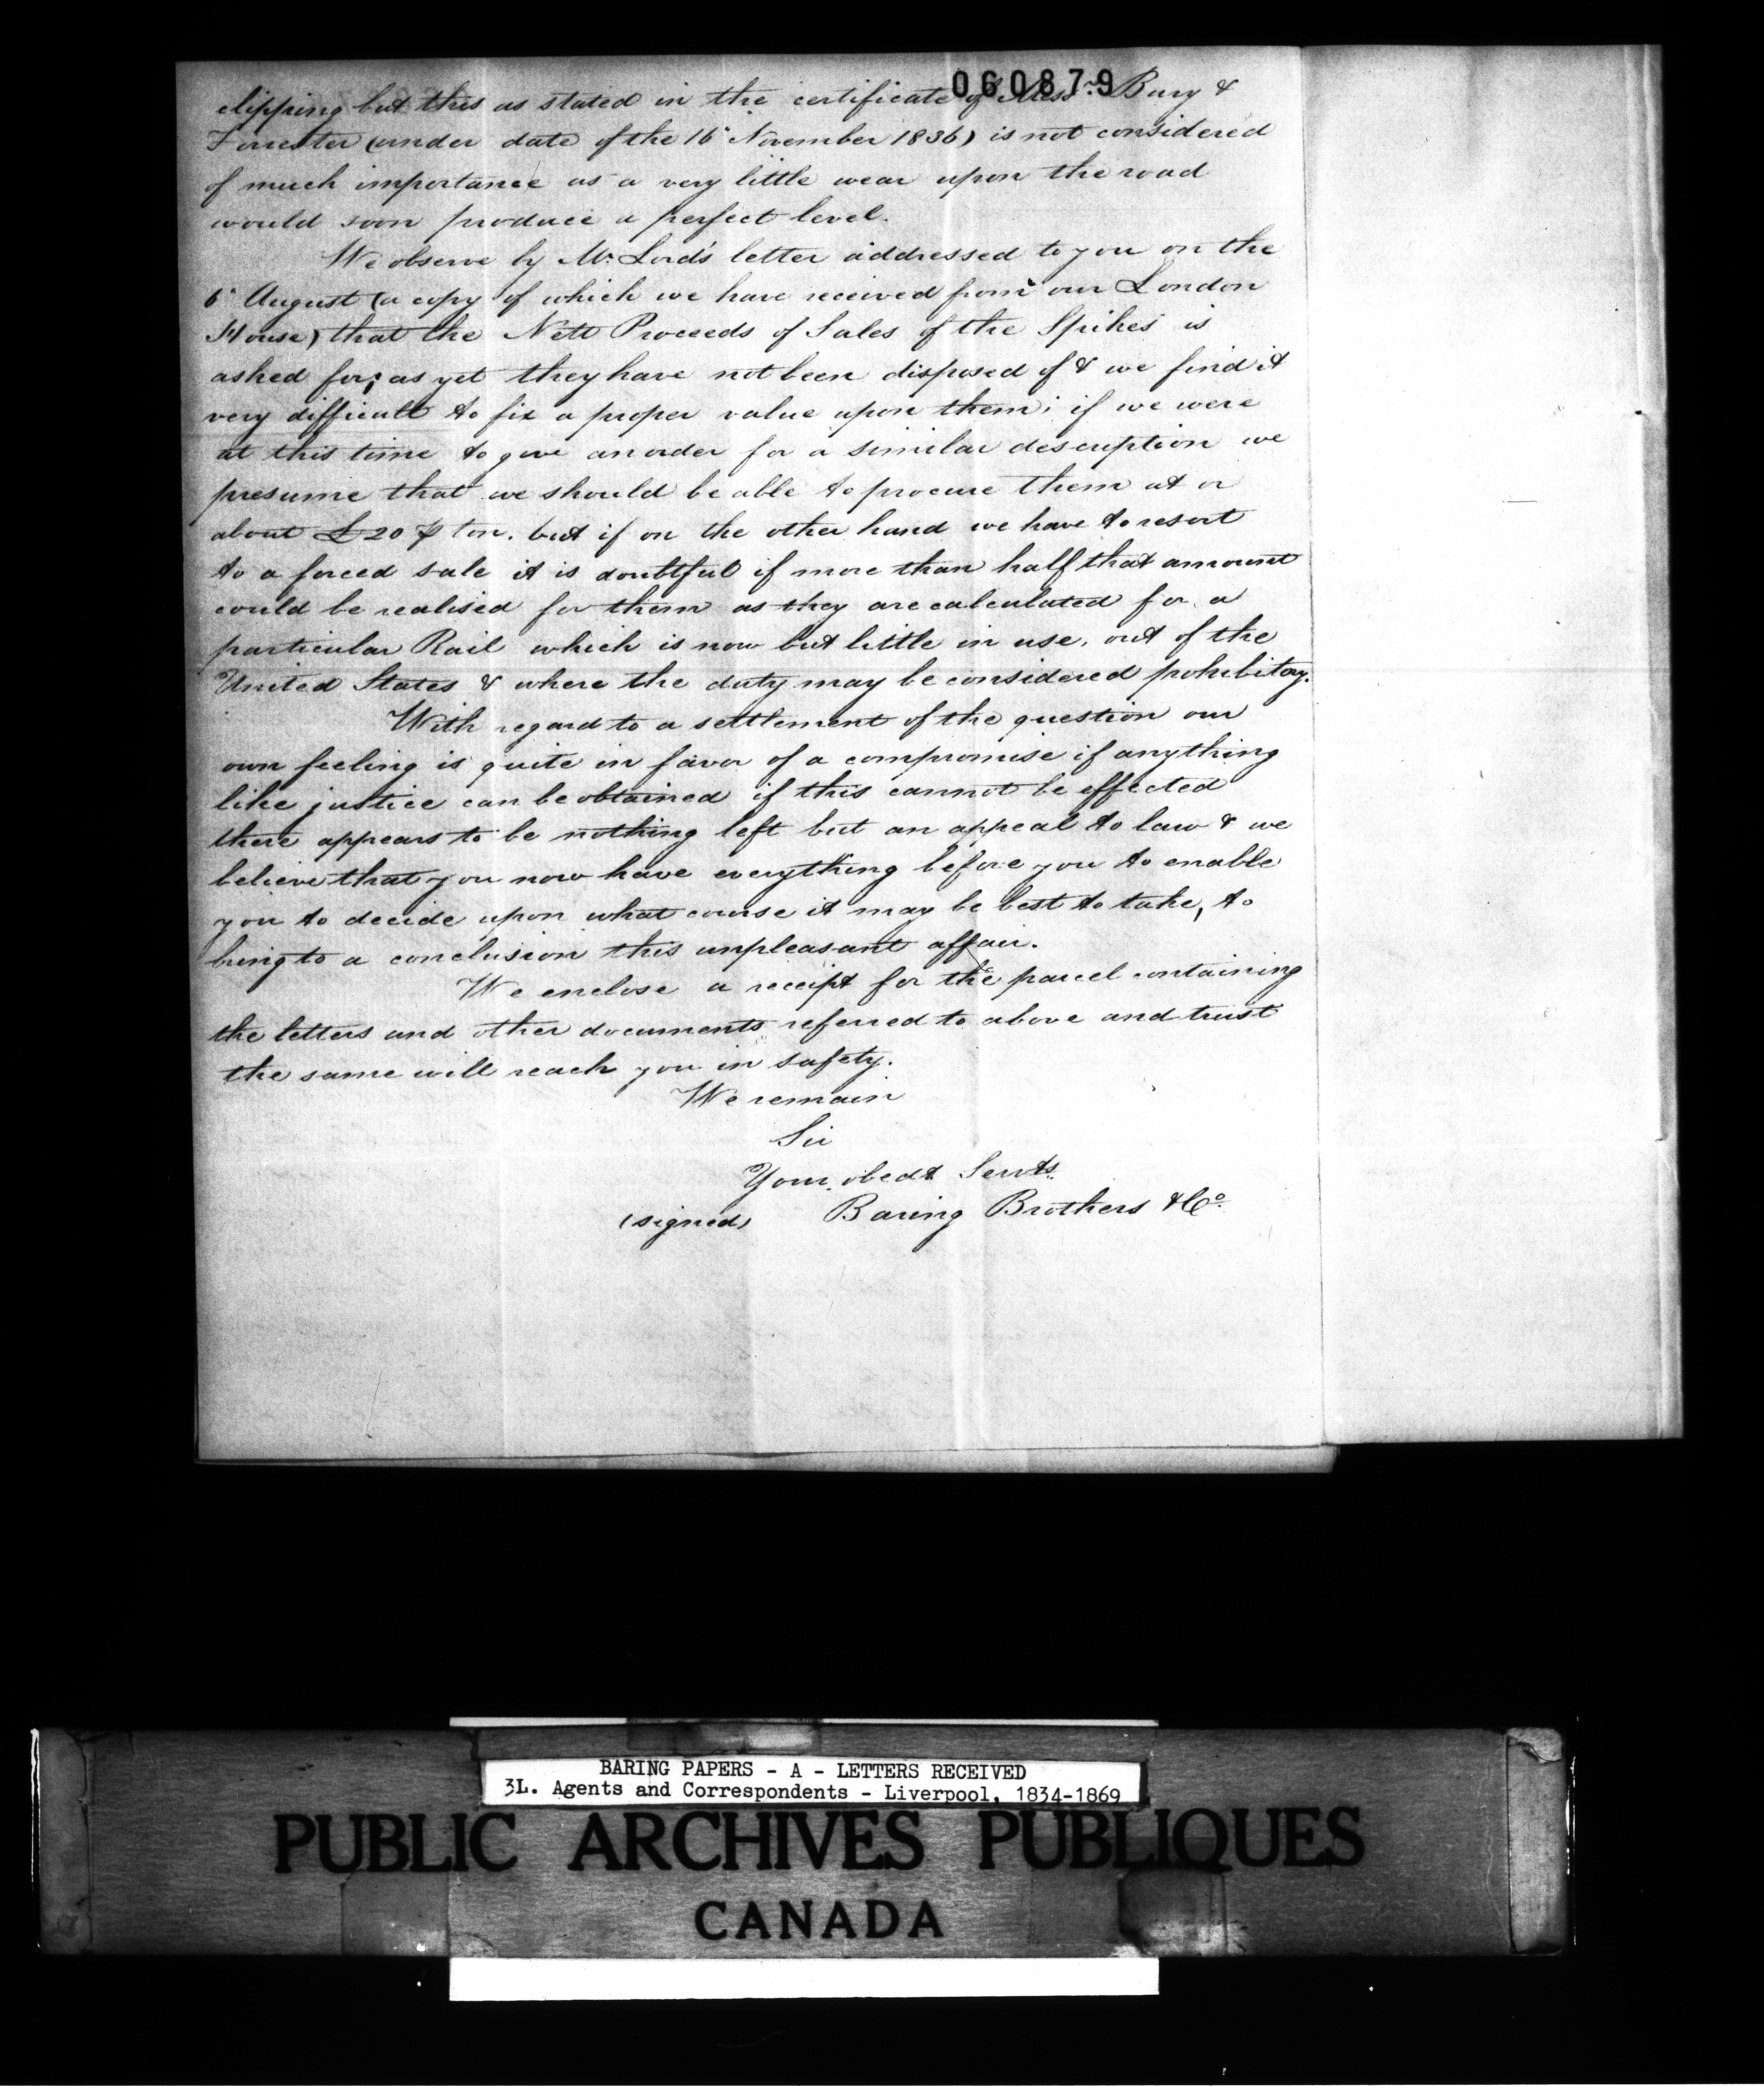 060879
clipping but this as stated in the certificate of Messrs Bury &
Forrester (under date of the 16 November 1836) is not considered
of much importance as a very little wear upon the road
would soon produce a perfect level.
We observe by Mr Lord's letter addressed to you on the
6 August (a copy of which we have received from our London
House) that the Nett Proceeds of Sales of the Spikes is
asked for; as yet they have not been disposed of & we find it
very difficult to fix a proper value upon them; if we were
at this time to give an order for a similar description we
presume that we should be able to procure them at or
about £20 ⅌ ton. but if on the other hand we have to resort
to a forced sale it is doubtful if more than half that amount
could be realised for them as they are calculated for a
particular Rail which is now but little in use, out of the
United States & where the duty may be considered prohibitory.
With regard to a settlement of the question our
own feeling is quite in favor of a compromise if anything
like justice can be obtained if this cannot be effected
there appears to be nothing left but an appeal to law & we
believe that you now have everything before you to enable
you to decide upon what course it may be best to take, to
bring to a conclusion this unpleasant affair.
We enclose a receipt for the parcel containing
the letters and other documents referred to above and trust
the same will reach you in safety.
We remain
Sir
Your obedt Servts
(signed) Baring Brothers & Co.
BARING PAPERS - A - LETTERS RECEIVED
3L. Agents and Correspondents - Liverpool, 1834-1869
PUBLIC ARCHIVES PUBLIQUES
CANADA